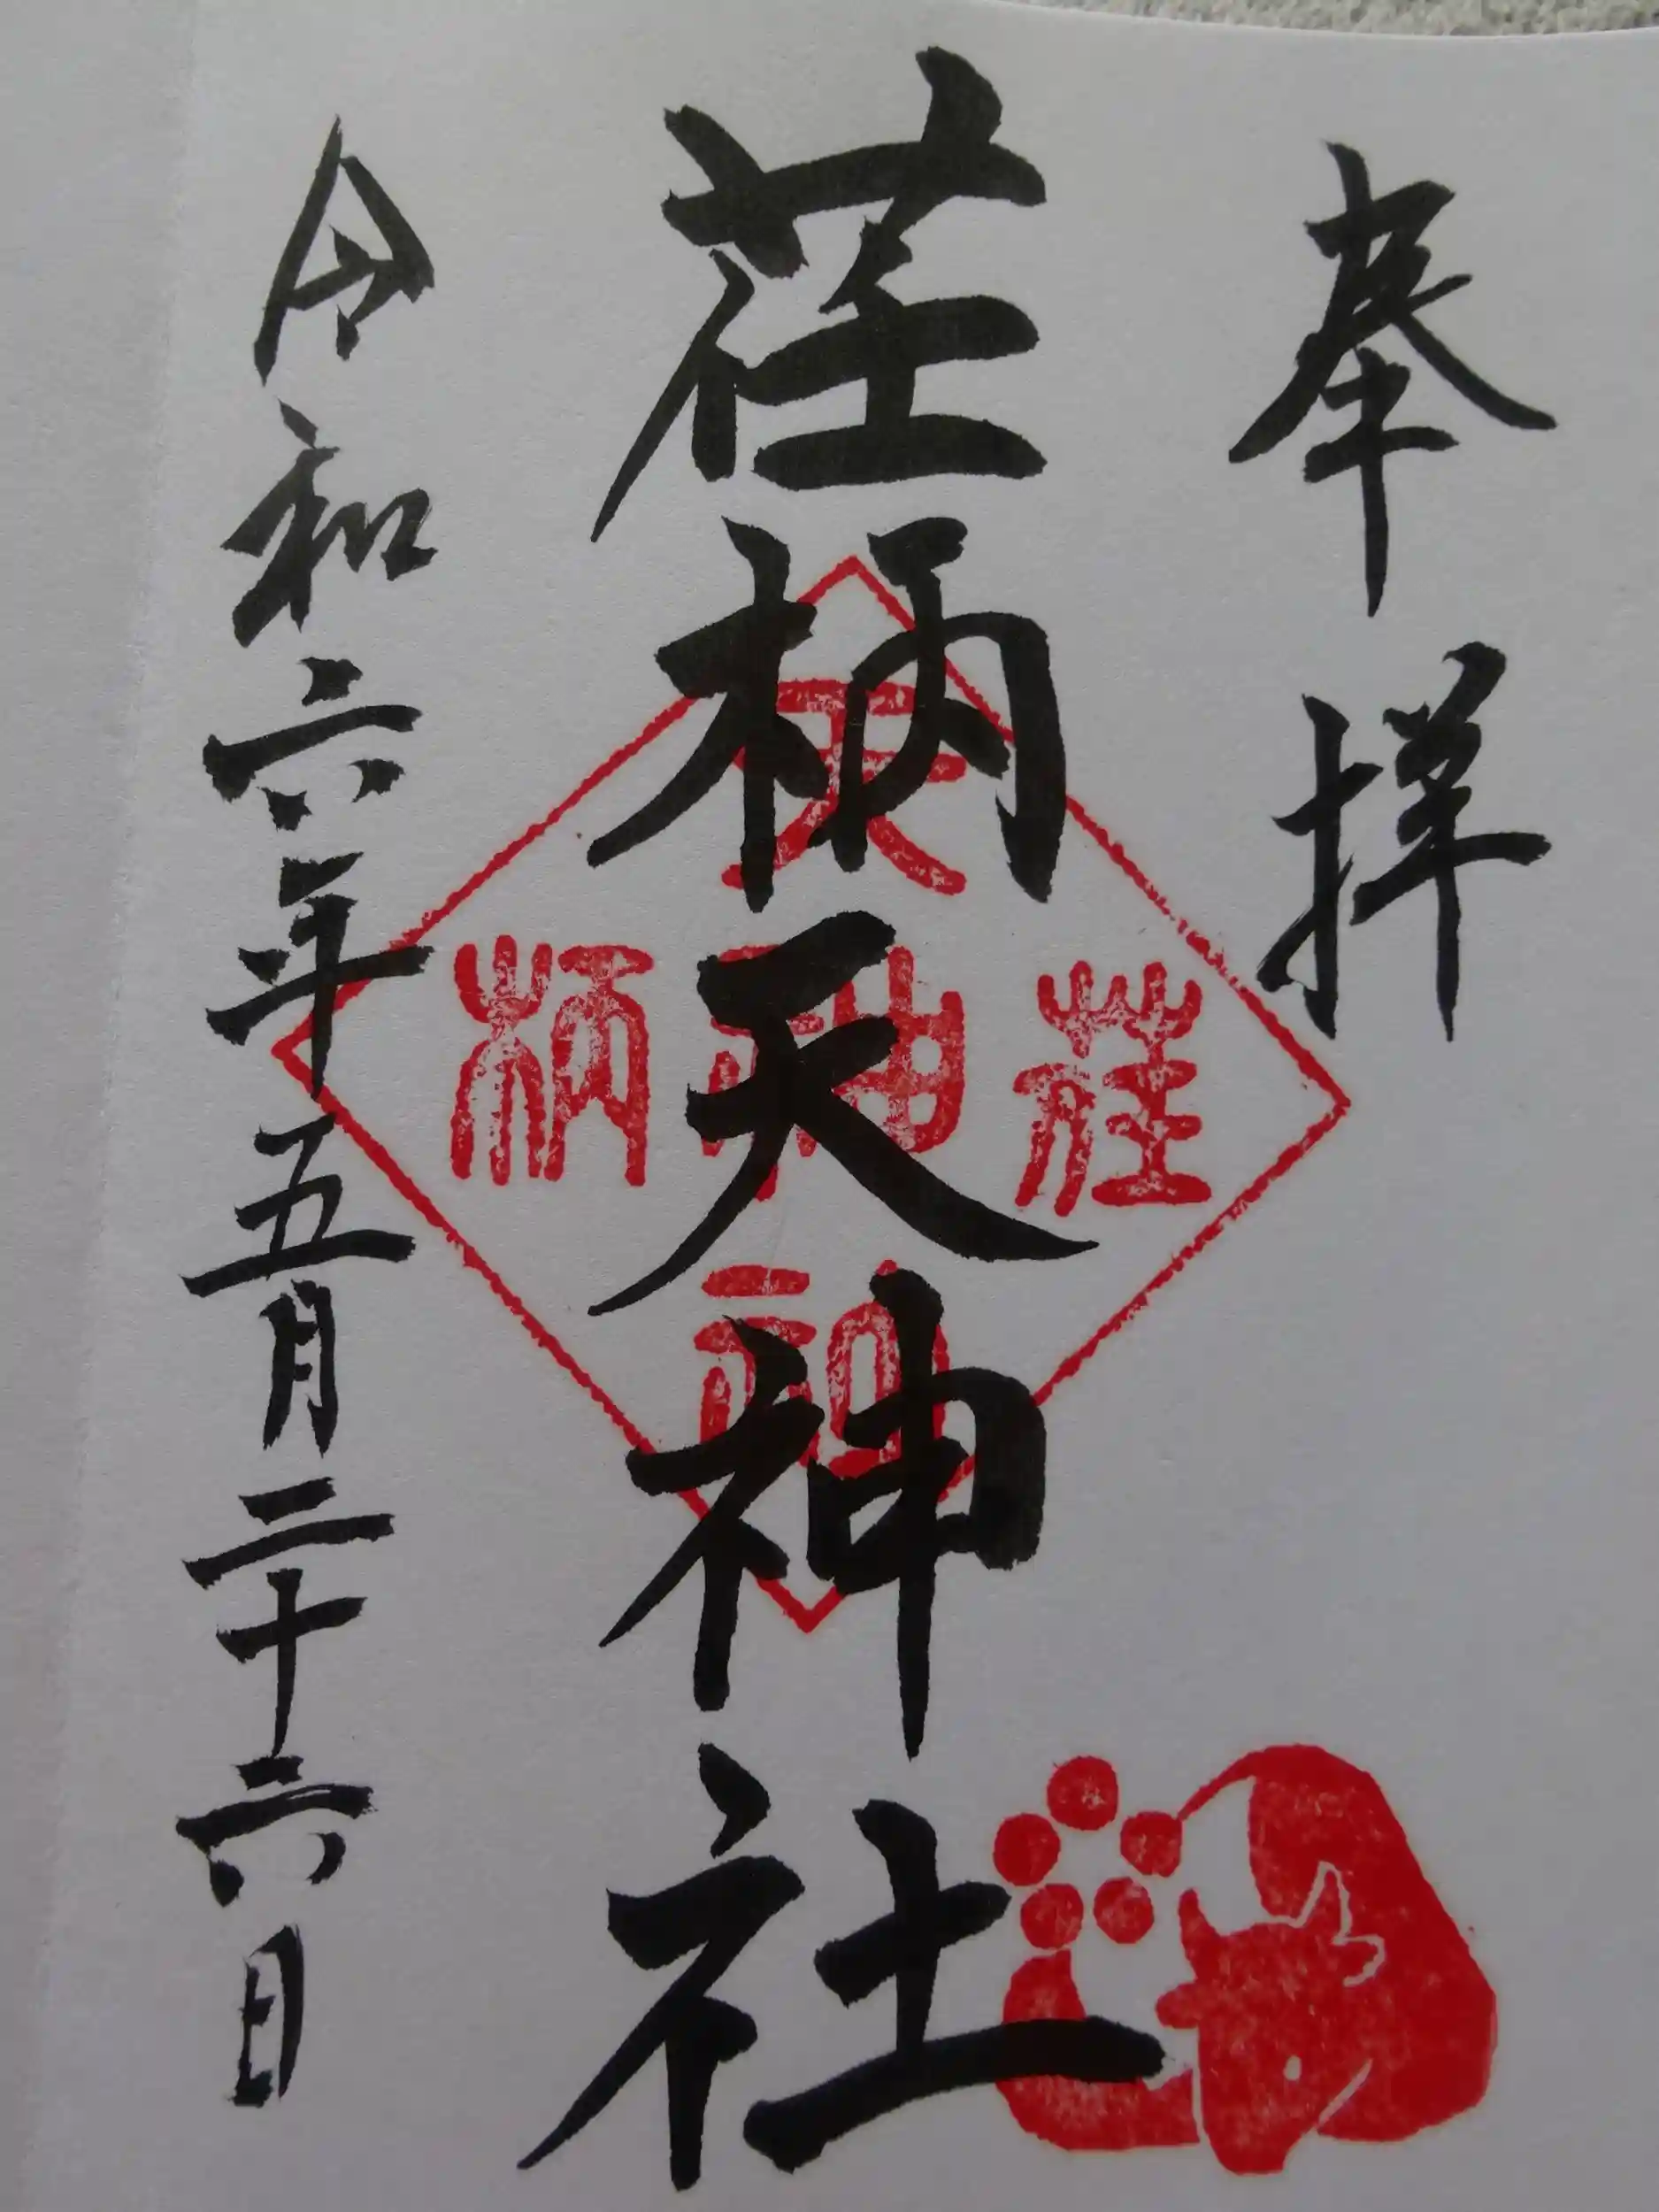 奉拝
荏柄天神社
令和六年五月二十六日
荏
天神社
柄